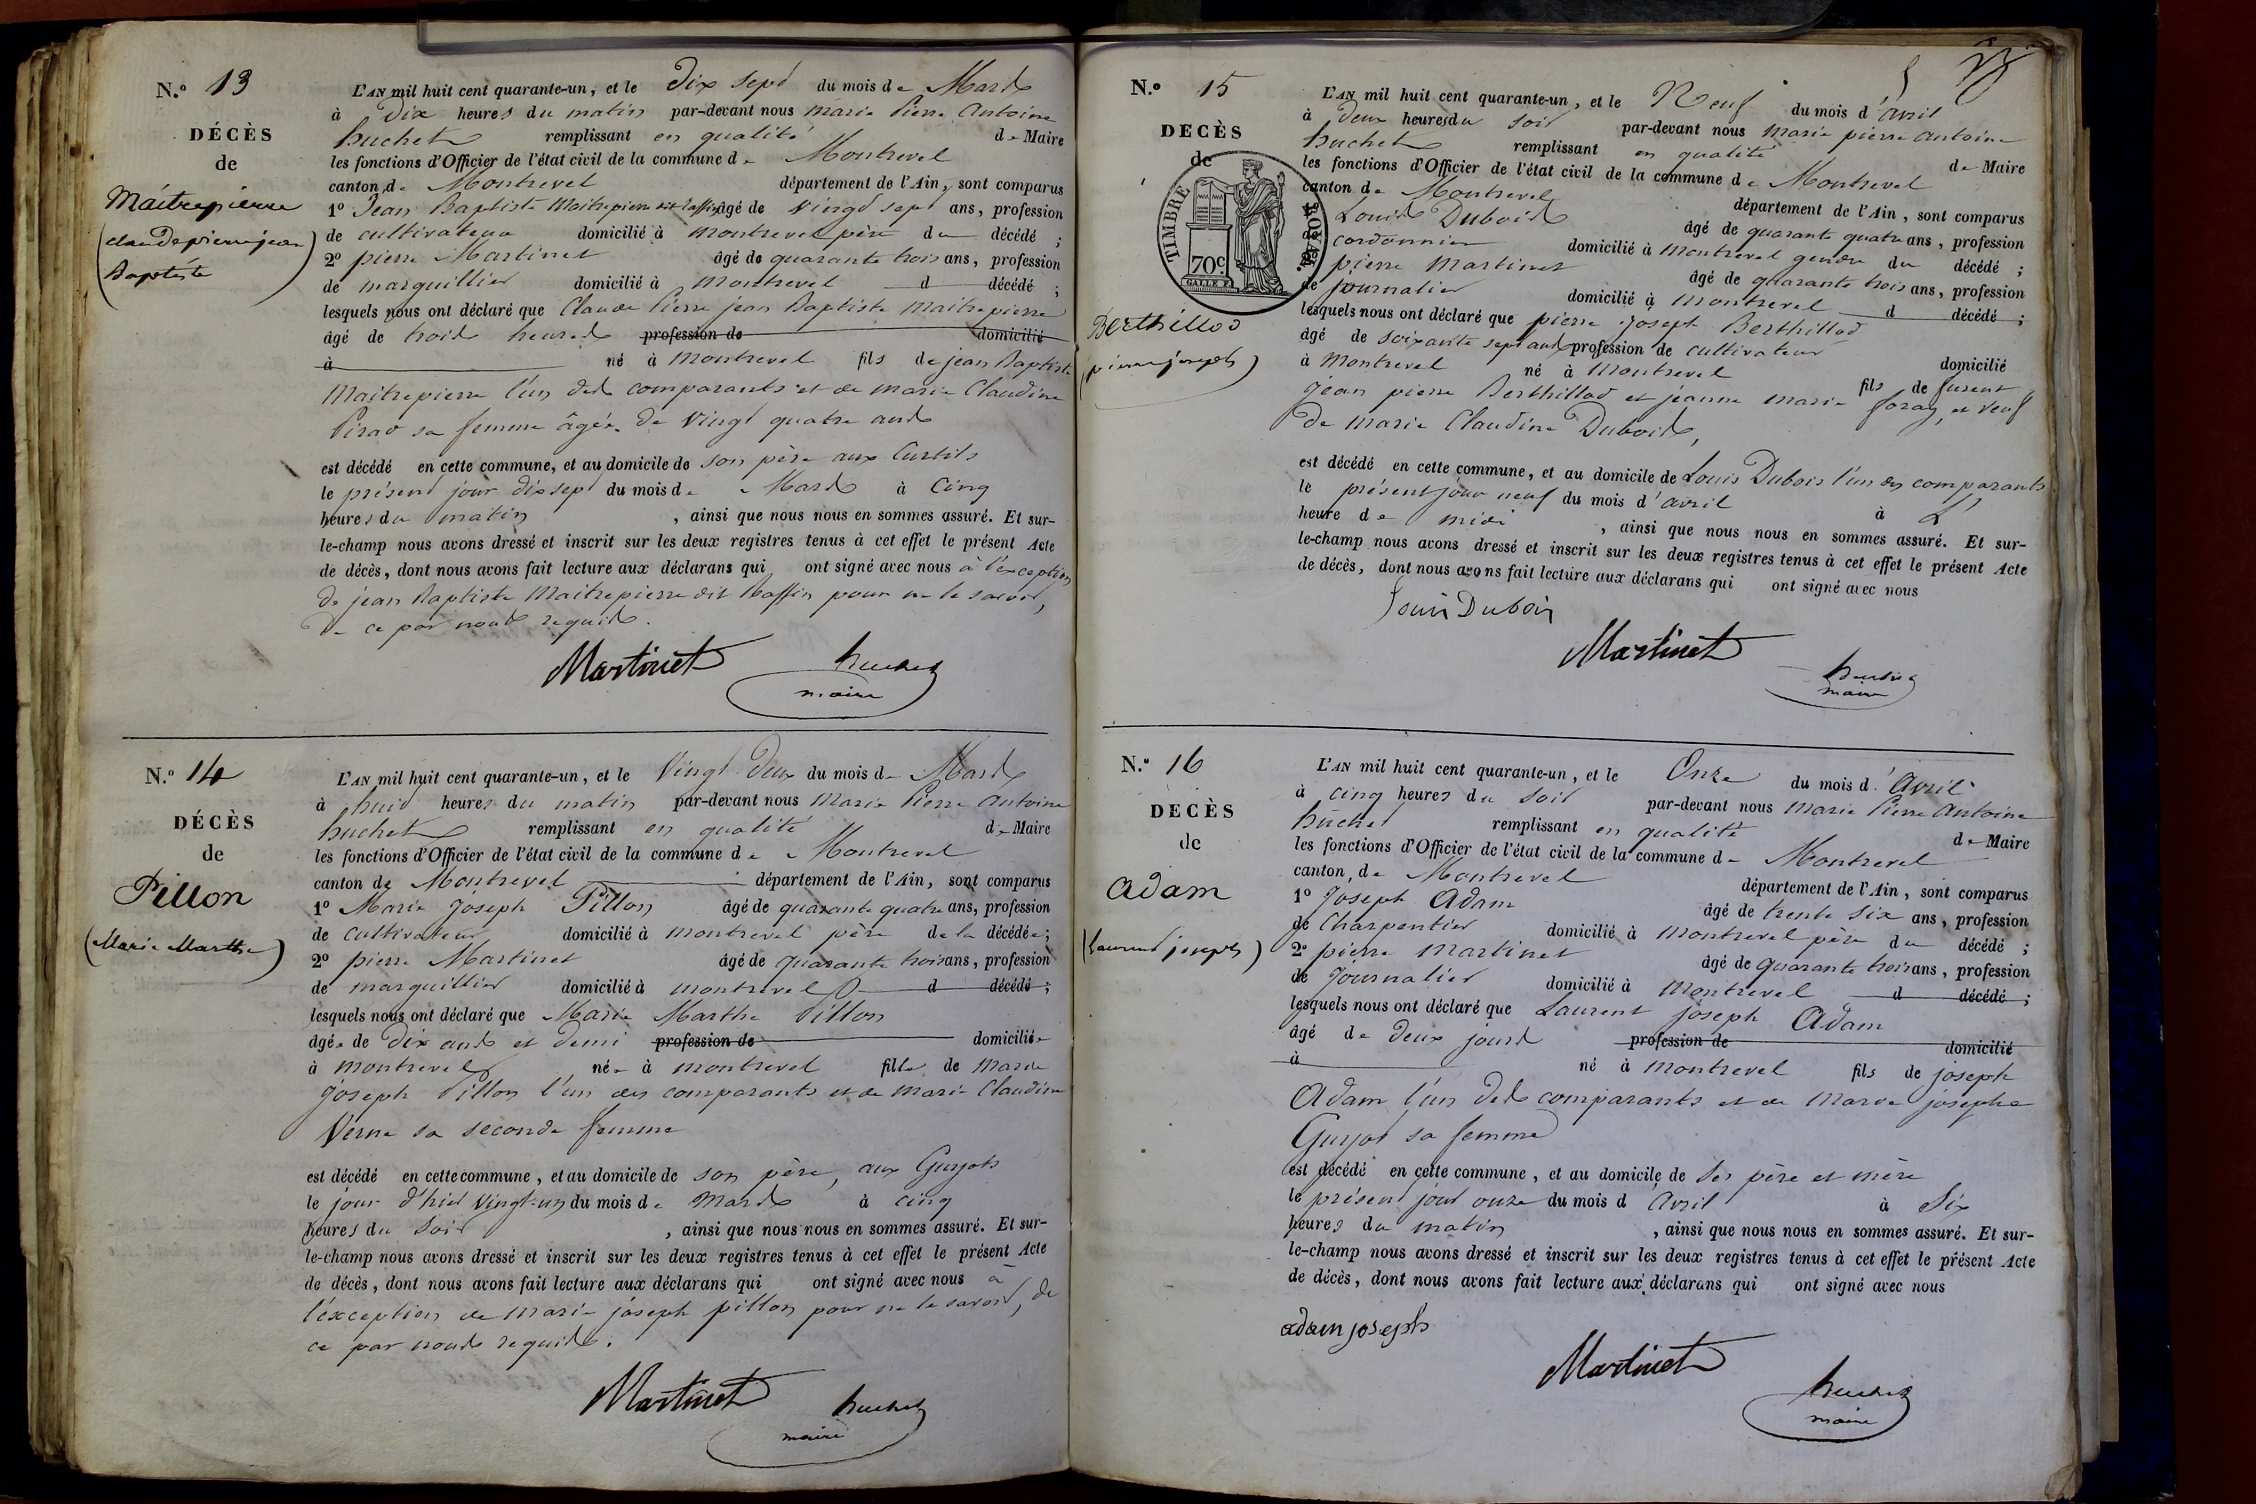 N.º 13
DÉCÈS
de
Maitrepierre
(claude pierre jean
Baptiste)
L'AN mil huit cent quarante-un, et le Dix sept du mois de Mars
à Dix heures du matin par-devant nous Marie Pierre Antoine
huchet remplissant en qualité de Maire
les fonctions d'Officier de l'état civil de la commune de Montrevel
canton de Montrevel département de l'Ain, sont comparus
1º Jean Baptiste Maitrepierre dit Baffin âgé de vingt sept ans, profession
de cultivateur domicilié à montrevel père du décédé ;
2º pierre Martinet âgé de quarante trois ans, profession
de marguillier domicilié à montrevel d décédé ;
lesquels nous ont déclaré que Claude Pierre jean Baptiste Maitrepierre
âgé de trois heures profession de domicilié
à né à Montrevel fils de jean Baptiste
Maitrepierre l'un des comparants et de marie Claudine
Pirat sa femme âgée de vingt quatre ans
est décédé en cette commune, et au domicile de son père aux Curtils
le présent jour dix sept du mois de Mars à Cinq
heures du matin , ainsi que nous nous en sommes assuré. Et sur-
le-champ nous avons dressé et inscrit sur les deux registres tenus à cet effet le présent Acte
de décès, dont nous avons fait lecture aux déclarans qui ont signé avec nous à l'exception
de jean Baptiste Maitrepierre dit Baffin pour ne le savoir,
de ce par nous requis.
Martinet huchet
maire
N.º 14
DÉCÈS
de
Pillon
(Marie Marthe)
L'AN mil huit cent quarante-un, et le Vingt Deux du mois de Mars
à huit heures du matin par-devant nous Marie Pierre antoine
huchet remplissant en qualité de Maire
les fonctions d'Officier de l'état civil de la commune de Montrevel
canton de Montrevel département de l'Ain, sont comparus
1º Marie Joseph Pillon âgé de quarante quatre ans, profession
de cultivateur domicilié à montrevel père de la décédée ;
2º pierre Martinet âgé de quarante trois ans, profession
de marguillier domicilié à montrevel d décédé ;
lesquels nous ont déclaré que Marie Marthe Pillon
âgée de Dix ans et demi profession de domiciliée
à montrevel née à montrevel fille de Marie
joseph Pillon l'un des comparants et de marie Claudine
Verne sa seconde femme
est décédé en cette commune, et au domicile de son père, aux Guyots
le jour d'hier vingt-un du mois de Mars à cinq
heures du soir , ainsi que nous nous en sommes assuré. Et sur-
le-champ nous avons dressé et inscrit sur les deux registres tenus à cet effet le présent Acte
de décès, dont nous avons fait lecture aux déclarans qui ont signé avec nous à
l'éxception de marie joseph pillon pour ne le savoir, de
ce par nous requis.
Martinet huchet
maire
5
N.º 15
DÉCÈS
de
TIMBRE ROYAL
70c.
Berthillod
(pierre joseph)
L'AN mil huit cent quarante-un, et le Neuf du mois d'avril
à deux heures du soir par-devant nous Marie pierre antoine
huchet remplissant en qualité de Maire
les fonctions d'Officier de l'état civil de la commune de Montrevel
canton de Montrevel département de l'Ain, sont comparus
Louis Dubois âgé de quarante quatre ans, profession
de cordonnier domicilié à montrevel gendre du décédé ;
pierre Martinet âgé de quarante trois ans, profession
de journalier domicilié à montrevel d décédé ;
lesquels nous ont déclaré que pierre joseph Berthillod
âgé de soixante sept ans profession de cultivateur domicilié
à Montrevel né à Montrevel fils de furent
jean pierre Berthillod et jeanne marie foray, et veuf
de marie Claudine Dubois,
est décédé en cette commune, et au domicile de Louis Dubois l'un des comparants
le présent jour neuf du mois d'avril à L'
heure de midi , ainsi que nous nous en sommes assuré. Et sur-
le-champ nous avons dressé et inscrit sur les deux registres tenus à cet effet le présent Acte
de décès, dont nous avons fait lecture aux déclarans qui ont signé avec nous
Louis Dubois
Martinet huchet
maire
N.º 16
DÉCÈS
de
Adam
(Laurent joseph)
L'AN mil huit cent quarante-un, et le Onze du mois d'Avril
à cinq heures du soir par-devant nous Marie Pierre Antoine
huchet remplissant en qualité de Maire
les fonctions d'Officier de l'état civil de la commune de Montrevel
canton de Montrevel département de l'Ain, sont comparus
1º Joseph Adam âgé de trente six ans, profession
de Charpentier domicilié à Montrevel père du décédé ;
2º pierre Martinet âgé de quarante trois ans, profession
de Journalier domicilié à Montrevel d décédé ;
lesquels nous ont déclaré que Laurent joseph Adam
âgé de deux jours profession de domicilié
à né à Montrevel fils de joseph
Adam l'un des comparants et de Marie josephe
Guyot sa femme
est décédé en cette commune, et au domicile de ses père et mère
le présent jour onze du mois d avril à Six
heures du matin , ainsi que nous nous en sommes assuré. Et sur-
le-champ nous avons dressé et inscrit sur les deux registres tenus à cet effet le présent Acte
de décès, dont nous avons fait lecture aux déclarans qui ont signé avec nous
adam joseph
Martinet huchet
maire